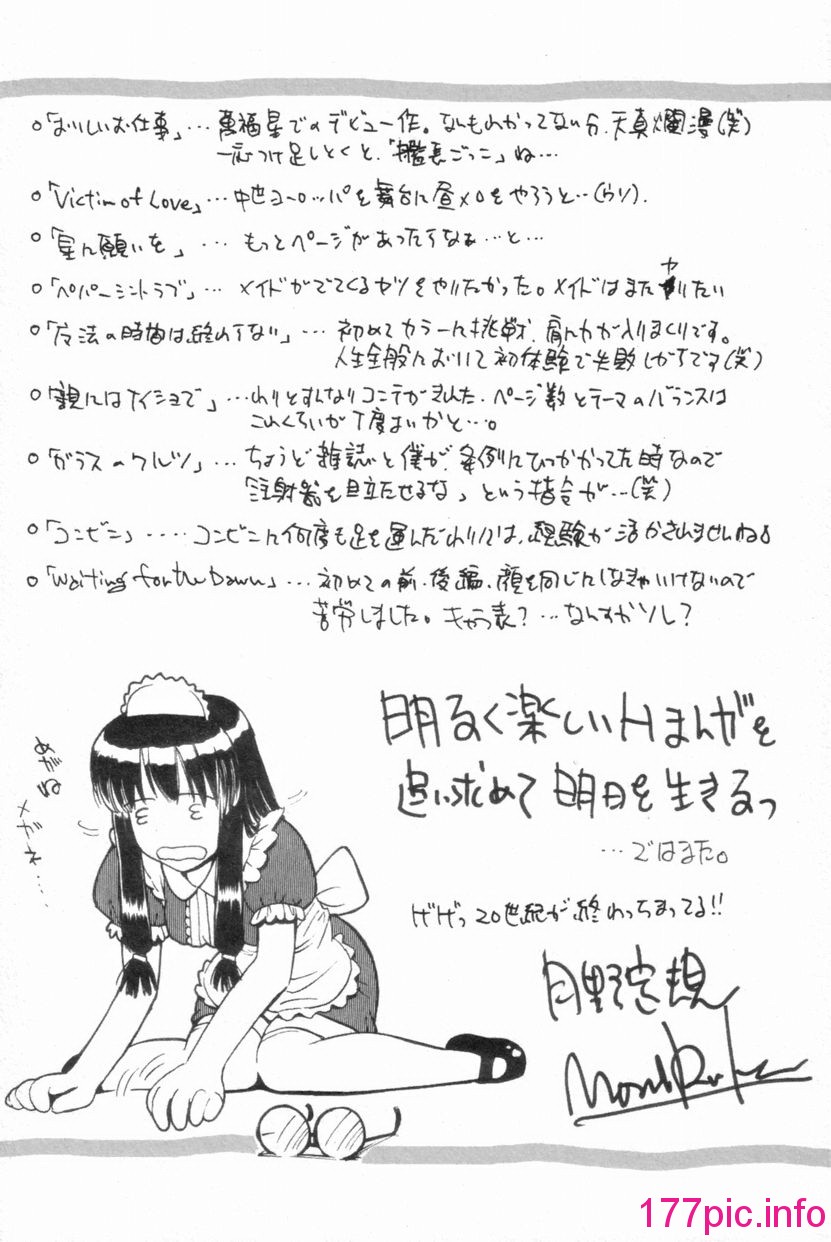 ○「おいしいお仕事」… 萬福星でのデビュー作。なんもわかってない分、天真爛漫(笑)
一応つけ足しとくと、「艦長ごっこ」ね…
○「Victim of Love」… 中世ヨーロッパを舞台に昼メロをやろうと…(ウソ).
○「星に願いを」… もっとページがあったらなぁ…と…
○「ペパーミントラブ」… メイドがでてくるヤツをやりたかった。メイドはまたヤりたい
○「魔法の時間は終わらない」… 初めてカラーに挑戦、肩に力が入りまくりです。
人生全般において初体験で失敗しがちです(笑)
○「親にはナイショで」… わりとすんなりコンテがきれた、ページ数とテーマのバランスは
これくらいが丁度よいかと…。
○「ガラスのワルツ」… ちょうど雑誌と僕が、条例にひっかかってた時なので
「注射器を目立たせるな」という指令が…(笑)
○「コンビニ」…‥ コンビニに何度も足を運んだわりには、経験が活かされませんね♪
○「Waiting for the Dawn」… 初めての前・後編、顔を同じにしなきゃいけないので
苦労しました。キャラ表?…なんすかソレ?
明るく楽しいHまんがを
追い求めて明日を生きるっ
…ではまた。
めがね
メガネ…
げげっ20世紀が終わっちまってる!!
月野定規
177pic.info